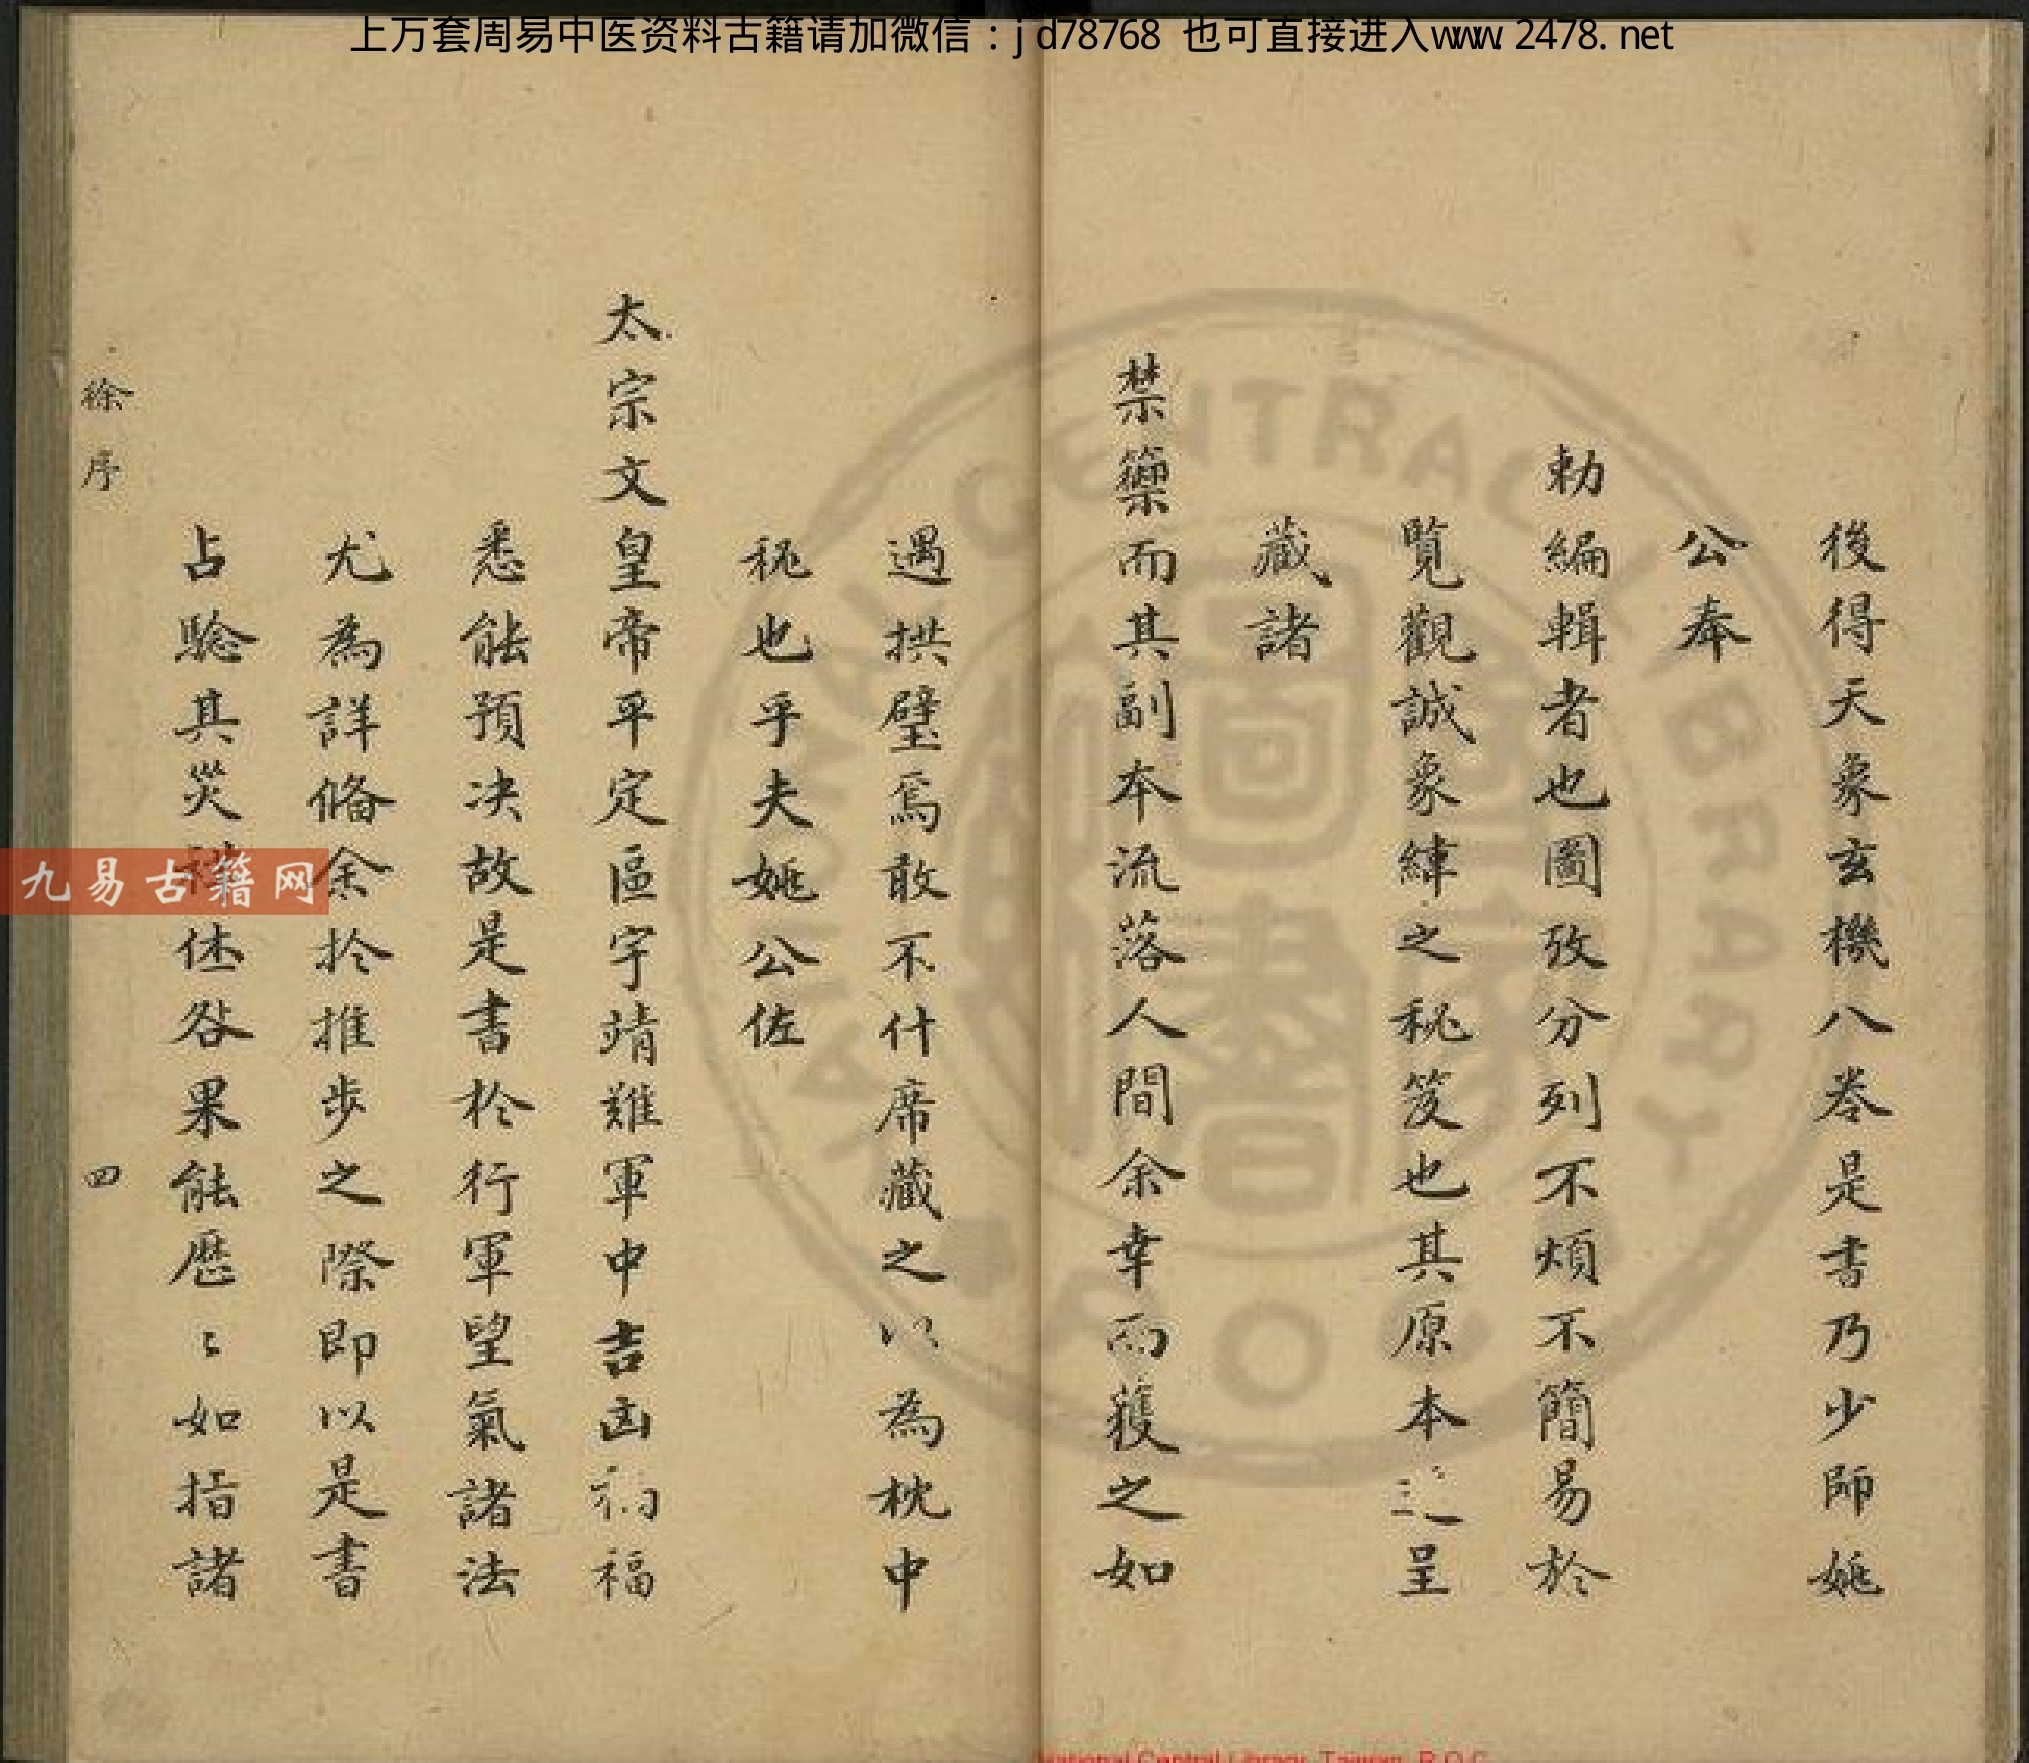 上万套周易中医资料古籍请加微信：jd78768 也可直接进入www.2478.net
後得天象玄機八卷是書乃少師姚
公奉
勅編輯者也圖攷分列不煩不簡易於
覽觀誠象緯之秘笈也其原本呈
藏諸
禁籞而其副本流落人間余幸而獲之如
遇拱璧焉敢不什席藏之以為枕中
秘也乎夫姚公佐
太宗文皇帝平定區宇靖難軍中吉凶禍福
悉能預决故是書於行軍望氣諸法
尤為詳偹余於推步之際即以是書
占驗其災祥休咎果能歷〻如指諸
徐序
四
九易古籍网
National Central Library, Taiwan, R.O.C